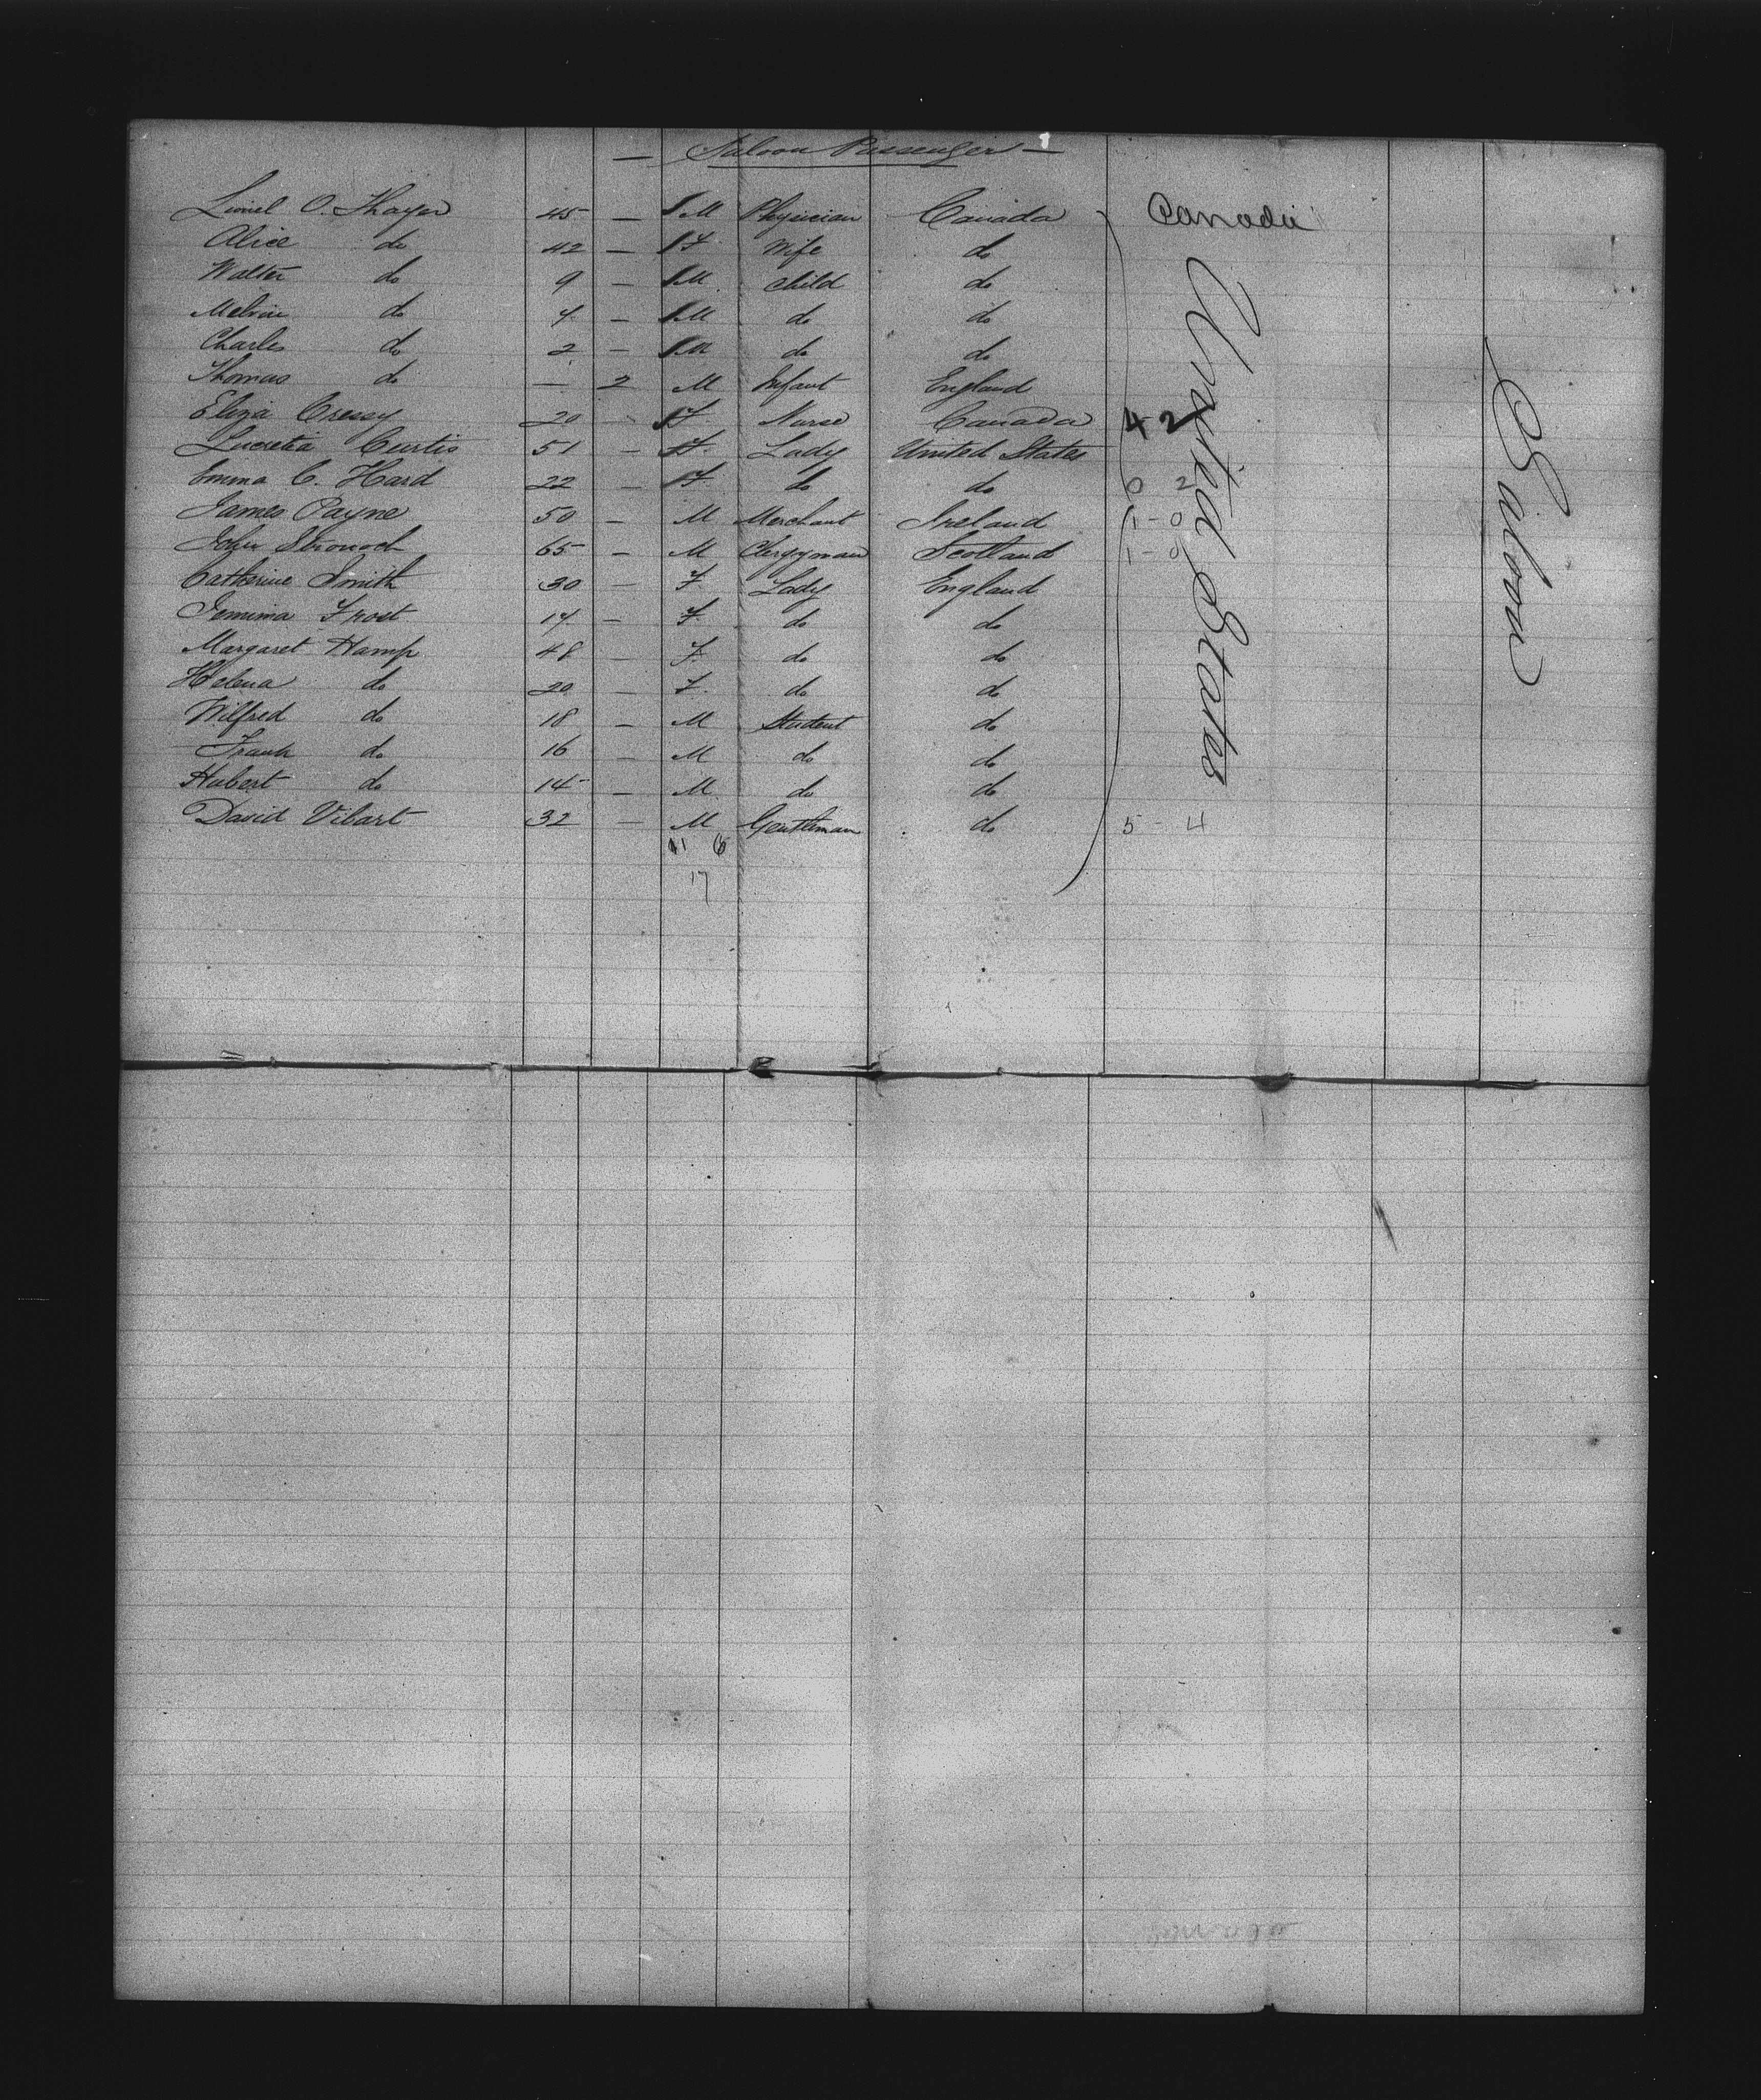 — Saloon Passenger —
Lionel O. Thayer 45 — M Physician Canada Canada
Alice do 42 — F Wife do
Walter do 9 — M child do
Melvin do 4 — M do do
Charles do 2 — M do do
Thomas do — 2 M Infant England
Eliza Cressy 20 — F Nurse Canada 4 2
Lucretia Curtis 51 — F Lady United States
Emma C. Hard 22 — F do do 0 2
James Payne 50 — M Merchant Ireland 1 - 0
John Stronach 65 — M Clergyman Scotland 1 - 0
Catherine Smith 30 — F Lady England
Jemima Frost 14 — F do do
Margaret Hamp 48 — F do do
Helena do 20 — F do do
Wilfred do 18 — M Student do
Frank do 16 — M do do
Hubert do 14 — M do do
David Vibart 32 — M Gentleman do 5 - 4
11 6
17
United States
Saloon